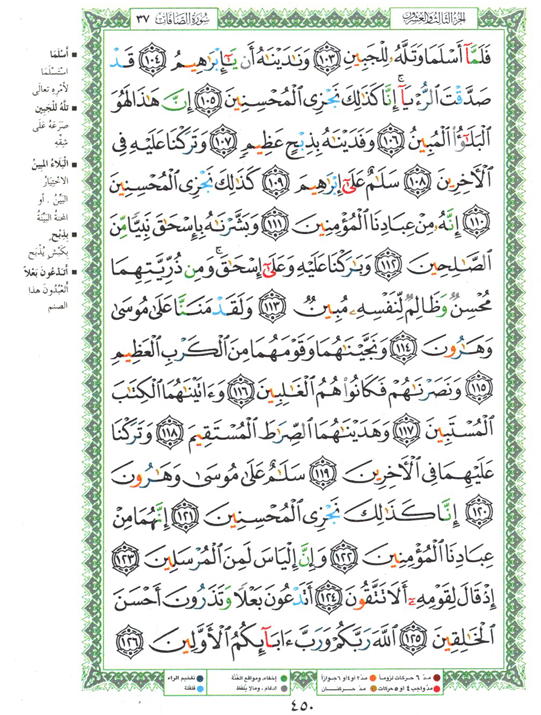 الجزء الثالث والعشرون
سورة الصافات ٣٧
فَلَمَّآ أَسْلَمَا وَتَلَّهُۥ لِلْجَبِينِ ١٠٣ وَنَٰدَيْنَٰهُ أَن يَٰٓإِبْرَٰهِيمُ ١٠٤ قَدْ
صَدَّقْتَ ٱلرُّءْيَآ ۚ إِنَّا كَذَٰلِكَ نَجْزِى ٱلْمُحْسِنِينَ ١٠٥ إِنَّ هَٰذَا لَهُوَ
ٱلْبَلَٰٓؤُا۟ ٱلْمُبِينُ ١٠٦ وَفَدَيْنَٰهُ بِذِبْحٍ عَظِيمٍ ١٠٧ وَتَرَكْنَا عَلَيْهِ فِى
ٱلْءَاخِرِينَ ١٠٨ سَلَٰمٌ عَلَىٰٓ إِبْرَٰهِيمَ ١٠٩ كَذَٰلِكَ نَجْزِى ٱلْمُحْسِنِينَ
١١٠ إِنَّهُۥ مِنْ عِبَادِنَا ٱلْمُؤْمِنِينَ ١١١ وَبَشَّرْنَٰهُ بِإِسْحَٰقَ نَبِيًّا مِّنَ
ٱلصَّٰلِحِينَ ١١٢ وَبَٰرَكْنَا عَلَيْهِ وَعَلَىٰٓ إِسْحَٰقَ ۚ وَمِن ذُرِّيَّتِهِمَا
مُحْسِنٌ وَظَالِمٌ لِّنَفْسِهِۦ مُبِينٌ ١١٣ وَلَقَدْ مَنَنَّا عَلَىٰ مُوسَىٰ
وَهَٰرُونَ ١١٤ وَنَجَّيْنَٰهُمَا وَقَوْمَهُمَا مِنَ ٱلْكَرْبِ ٱلْعَظِيمِ
١١٥ وَنَصَرْنَٰهُمْ فَكَانُوا۟ هُمُ ٱلْغَٰلِبِينَ ١١٦ وَءَاتَيْنَٰهُمَا ٱلْكِتَٰبَ
ٱلْمُسْتَبِينَ ١١٧ وَهَدَيْنَٰهُمَا ٱلصِّرَٰطَ ٱلْمُسْتَقِيمَ ١١٨ وَتَرَكْنَا
عَلَيْهِمَا فِى ٱلْءَاخِرِينَ ١١٩ سَلَٰمٌ عَلَىٰ مُوسَىٰ وَهَٰرُونَ
١٢٠ إِنَّا كَذَٰلِكَ نَجْزِى ٱلْمُحْسِنِينَ ١٢١ إِنَّهُمَا مِنْ
عِبَادِنَا ٱلْمُؤْمِنِينَ ١٢٢ وَإِنَّ إِلْيَاسَ لَمِنَ ٱلْمُرْسَلِينَ ١٢٣
إِذْ قَالَ لِقَوْمِهِۦٓ أَلَا تَتَّقُونَ ١٢٤ أَتَدْعُونَ بَعْلًا وَتَذَرُونَ أَحْسَنَ
ٱلْخَٰلِقِينَ ١٢٥ ٱللَّهَ رَبَّكُمْ وَرَبَّ ءَابَآئِكُمُ ٱلْأَوَّلِينَ ١٢٦
■ أَسْلَمَا
اسْتَسْلَمَا
لأمْرِهِ تعالى
■ تَلَّهُ لِلْجَبِينِ
صَرَعَهُ عَلَى
شِقِّهِ
■ الْبَلَاءُ المبينُ
الاخْتِبَارُ
البَيِّنُ . أو
المِحْنَةُ البَيِّنَةُ
■ بِذِبْحٍ
بِكَبْشٍ يُذْبَح
■ أَتَدْعُونَ بَعْلاً
أَتَعْبُدُونَ هذا
الصنم
مدّ ٦ حركات لزوماً مدّ ٢ أو ٤ أو ٦ جوازاً
مدّ واجب ٤ أو ٥ حركات مدّ حركتان
إخفاء، ومواقع الغُنَّة
ادغام ، ومالا يُلفَظ
تفخيم الراء
قلقلة
٤٥٠